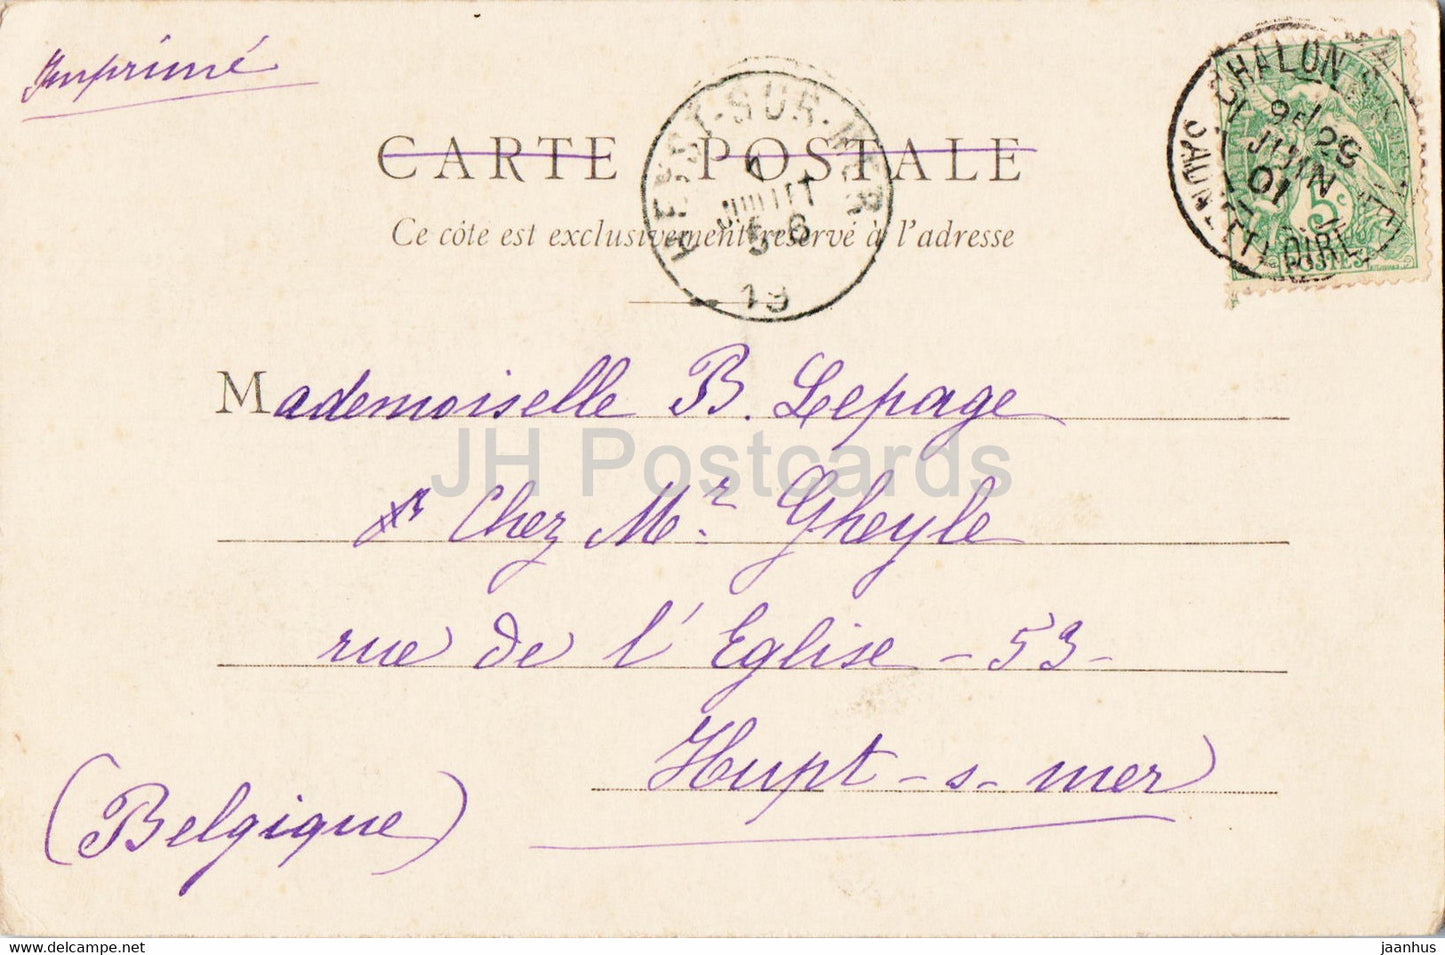 Imprimé
CARTE POSTALE
Ce côte est exclusivement réservé à l'adresse
HEYST-SUR-MER
1
JUILLET
5-6
19
CHALON-S-SAÔNE
29
JUIN
01
SAÔNE-ET-LOIRE
5c
POSTES
Mademoiselle B. Lepage
Chez Mr. Gheyle
rue de l'Eglise - 53 -
Hupt - s - mer
(Belgique)
JH Postcards
jaanhus